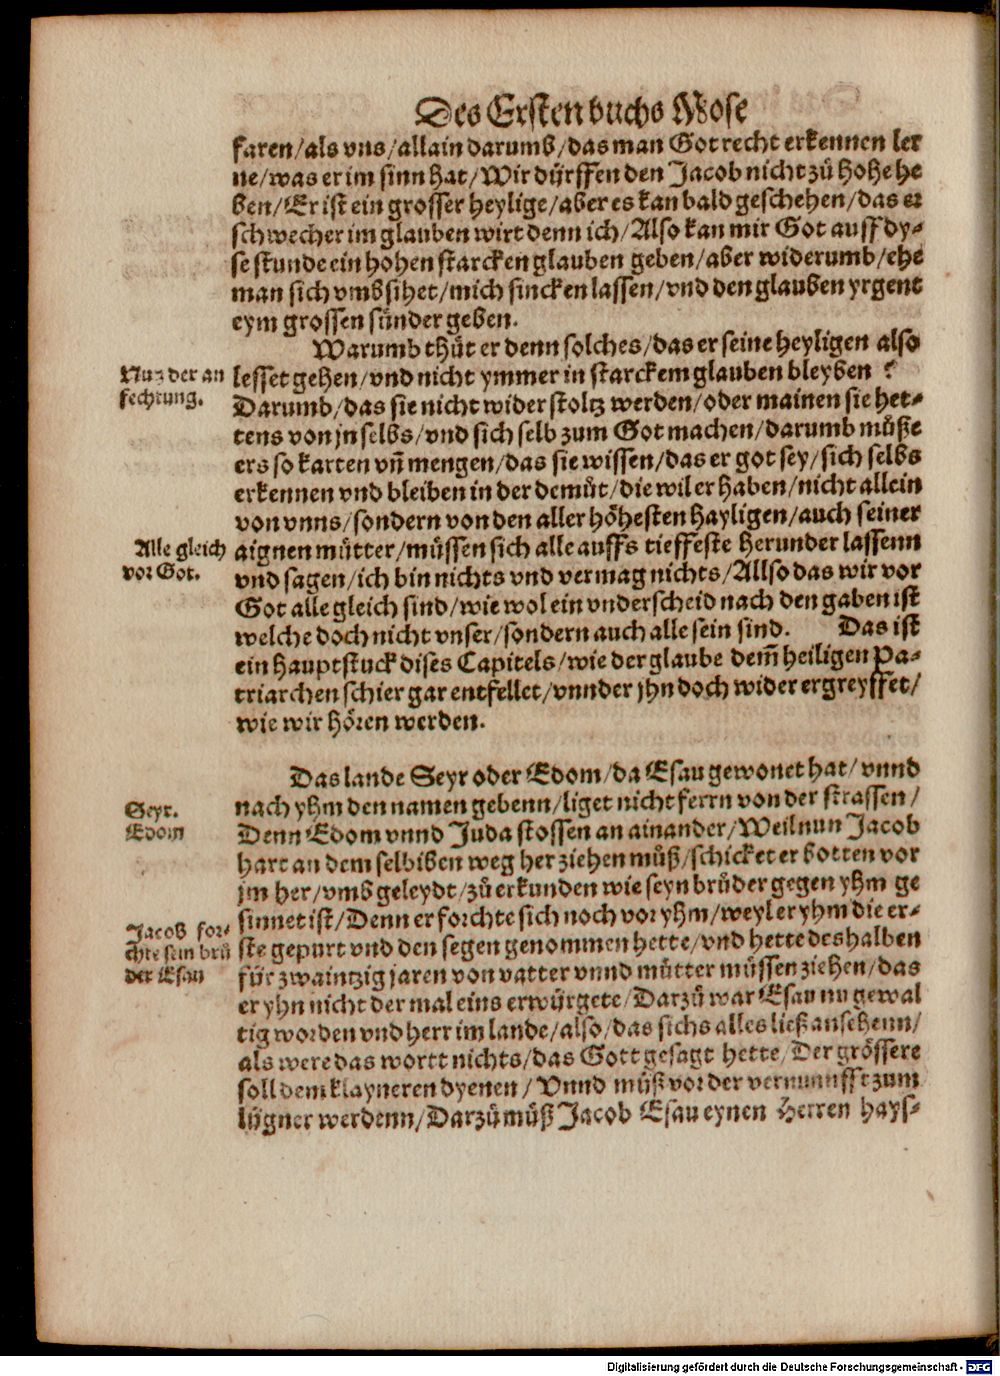 Des Ersten buchs Mose
faren/als vns/allain darumb/das man Got recht erkennen ler
ne/was er im sinn hat/Wir dürffen den Jacob nicht zů hohe he
ben/Er ist ein grosser heylige/aber es kan bald geschehen/das er
schwecher im glauben wirt denn ich/Also kan mir Got auff dy-
se stunde ein hohen starcken glauben geben/aber widerumb/ehe
man sich vmb sihet/mich sincken lassen/vnd den glauben yrgent
eym grossen sünder geben.
Warumb thůt er denn solches/das er seine heyligen also
Nuz der an
fechtung.
lesset gehen/vnd nicht ymmer in starckem glauben bleyben ?
Darumb/das sie nicht wider stoltz werden/oder mainen sie het-
tens von jn selbs/vnd sich selb zum Got machen/darumb můße
ers so karten vñ mengen/das sie wissen/das er got sey/sich selbs
erkennen vnd bleiben in der demůt/die wil er haben/nicht allein
von vnns/sondern von den aller höhesten hayligen/auch seiner
Alle gleich
vor Got.
aignen můtter/müssen sich alle auffs tieffeste herunder lassenn
vnd sagen/ich bin nichts vnd vermag nichts/Allso das wir vor
Got alle gleich sind/wie wol ein vnderscheid nach den gaben ist
welche doch nicht vnser/sondern auch alle sein sind. Das ist
ein hauptstuck dises Capitels/wie der glaube dem̃ heiligen Pa-
triarchen schier gar entfellet/vnnd er jhn doch wider ergreyffet/
wie wir hören werden.
Das lande Seyr oder Edom/da Esau gewonet hat/vnnd
Seyr.
Edom
nach yhm den namen gebenn/liget nicht ferrn von der strassen/
Denn Edom vnnd Juda stossen an ainander/Weil nun Jacob
hart an dem selbiben weg her ziehen můß/schicket er botten vor
jm her/vmb geleydt/zů erkunden wie seyn brůder gegen yhm ge
Jacob for-
chte sein brů
der Esau
sinnet ist/Denn er forchte sich noch vor yhm/weyl er yhm die er-
ste gepurt vnd den segen genommen hette/vnd hette deshalben
für zwaintzig jaren von vatter vnnd můtter müssen ziehen/das
er yhn nicht der mal eins erwürgete/Darzů war Esau nu gewal
tig worden vnd herr im lande/also/das sichs alles ließ ansehenn/
als were das wortt nichts/das Gott gesagt hette/Der grössere
soll dem klayneren dyenen/Vnnd můß vor der vernunnfft zum
lügner werdenn/Darzů můß Jacob Esau eynen Herren hays-
Digitalisierung gefördert durch die Deutsche Forschungsgemeinschaft - DFG